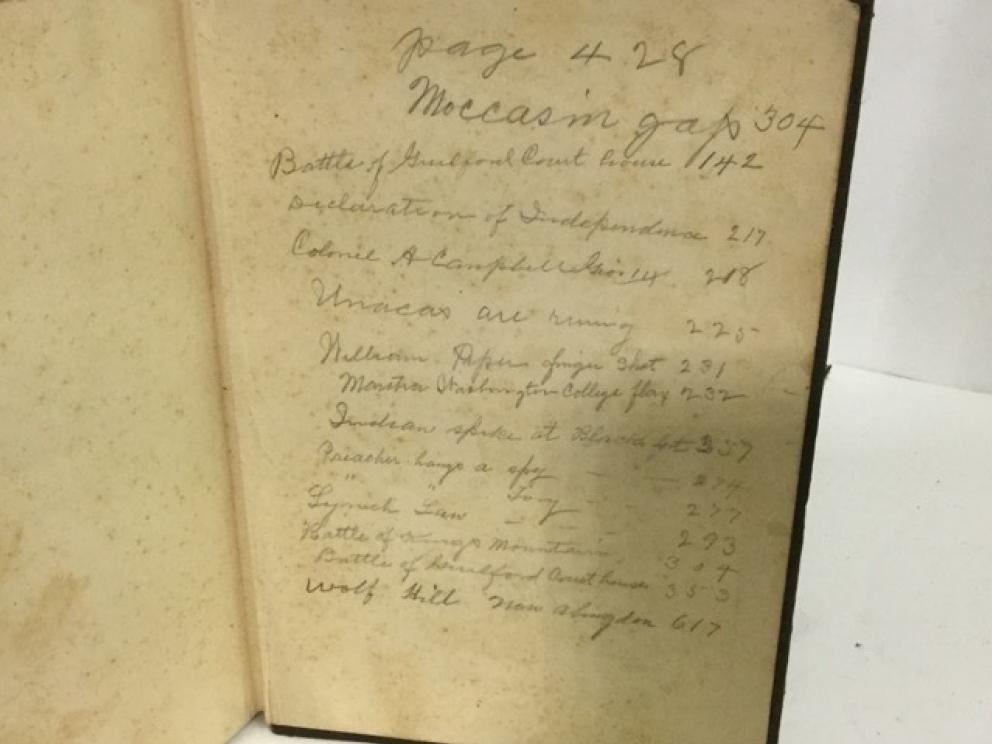 page 428
Moccasin gap 304
Battle of Guilford Court house 142
Declaration of Independence 217
Colonel A Campbell 218
Unacas are 225
William finger Shot 231
Martha Washington College 232
Indian spike at 337
Preacher hangs a spy — — 274
" " Tory — - 277
Lynch Law — - - 293
Battle of Kings Mountain 304
Battle of Guilford Court house 353
Wolf Hill now abingdon 617